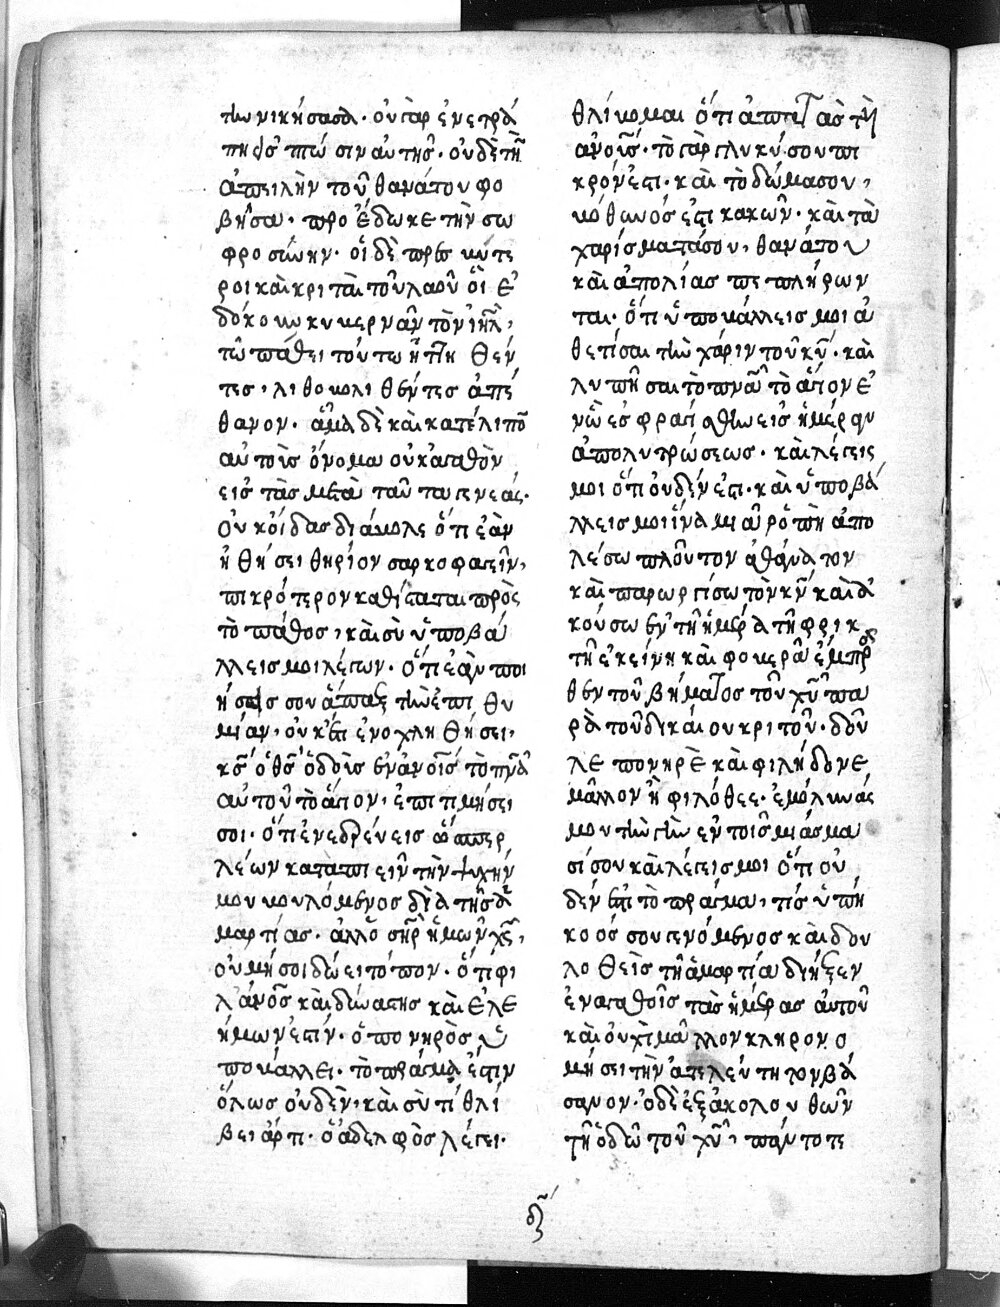 τὴν νικήσασα· οὐ γὰρ ἐνετρά
πης ἐπτώσιν αὐτῆς· οὐδὲ τῆ
ἀπειλὴν τοῦ θανάτου φο
βῆσα· προέδωκε τὴν σω
φροσύνην· οἱ δὲ πρεσβύτε
ροι καὶ κριταὶ τοῦ λαοῦ οἳ ἐ
δόκουν κυβερνᾶν τὸν ἰηλ,
τῶ πάθει τούτω ἡττηθέν
τες· λιθοβολιθέντες ἀπέ
θανον· ἅμα δὲ καὶ κατέλιπον
αὐτοῖς ὄνομα οὐκ ἀγαθὸν
εἰς τὰς μετὰ ταῦτα γενεάς·
Οὐκ οἶδας διάβολε ὅτι ἐὰν
ἠθήσει θηρίον σαρκοφαγεῖν,
πικρότερον καθίσταται πρὸς
τὸ πάθος, καὶ σὺ ὑποβά
λλεις μοι λέγων· ὅτι ἐὰν ποι
ήσεις σου ἅπαξ τὴν ἐπιθυ
μίαν, οὐκέτι ἐνοχληθήσει·
κς ὁ θς ὁ δοὺς ἐν ἀνοις τὸ πνα
αὐτοῦ τὸ ἅγιον, ἐπιτιμήσει
σοι· ὅτι ἐνεδρεύεις ὥσπερ
λέων καταπιεῖν τὴν ψυχήν
μου βουλόμενος διὰ τῆς ἁ
μαρτίας· ἀλλ' ὁ σηρ ἡμῶν χς,
οὐ μή σοι δώει τόπον· ὅτι φι
λάνος καὶ δυνάστης καὶ ἐλε
ήμων ἐστίν· ὁ πονηρὸς ὑ
ποβάλλει· τὸ πράγμα ἐστιν
ὅλως οὐδὲν· καὶ σὺ τί θλί
βει ἄρτι· ὁ ἀδελφὸς λέγει·
θλίβομαι ὅτι ἀπατᾶς τοὺς
ἀνους· τὸ γὰρ γλυκύ σου πι
κρόν ἐστι· καὶ τὸ δῶμα σου,
βόθυνός ἐστι κακῶν· καὶ τὰ
χαρίσματά σου, θανάτου
καὶ ἀπολίας πεπλήρων
ται· ὅτι ὑποβάλλεις μοι ἀ
θετίσαι τὴν χάριν τοῦ κυ· καὶ
λυπῆσαι τὸ πνα τὸ ἅγιον ἐ
ν ὧ ἐσφραγίσθην εἰς ἡμέραν
ἀπολυτρώσεως· καὶ λέγεις
μοι ὅτι οὐδέν ἐστι· καὶ ὑποβά
λλεις μοι ἵνα μιᾶ ροπῆ ἀπο
λέσω πλοῦτον ἀθάνατον
καὶ παρωργίσω τὸν κν καὶ ἀ
κούσω ἐν τῆ ἡμέρα τῆ φρικ
τῆ ἐκείνη καὶ φοβερᾶ ἔμπροσ
θεν τοῦ βήματος τοῦ χυ πα
ρὰ τοῦ δικαίου κριτοῦ· δοῦ
λε πονηρὲ καὶ φιλήδονε
μᾶλλον ἢ φιλόθεε· ἐμόλυνάς
μου τὴν γῆν ἐν τοῖς μιάσμα
σί σου καὶ λέγεις μοι ὅτι οὐ
δέν ἐστι τὸ πράγμα, τίς ὑπή
κοός σου γενόμενος καὶ δου
λοθεὶς τῆ ἁμαρτία διῆξεν
ἐν ἀγαθοῖς τὰς ἡμέρας αὐτοῦ
καὶ οὐχὶ μᾶλλον κληρονο
μήσει τὴν ἀτελεύτητον βά
σανον· ὁ δὲ ἐξακολουθῶν
τῆ ὁδῶ τοῦ χυ, πάντοτε